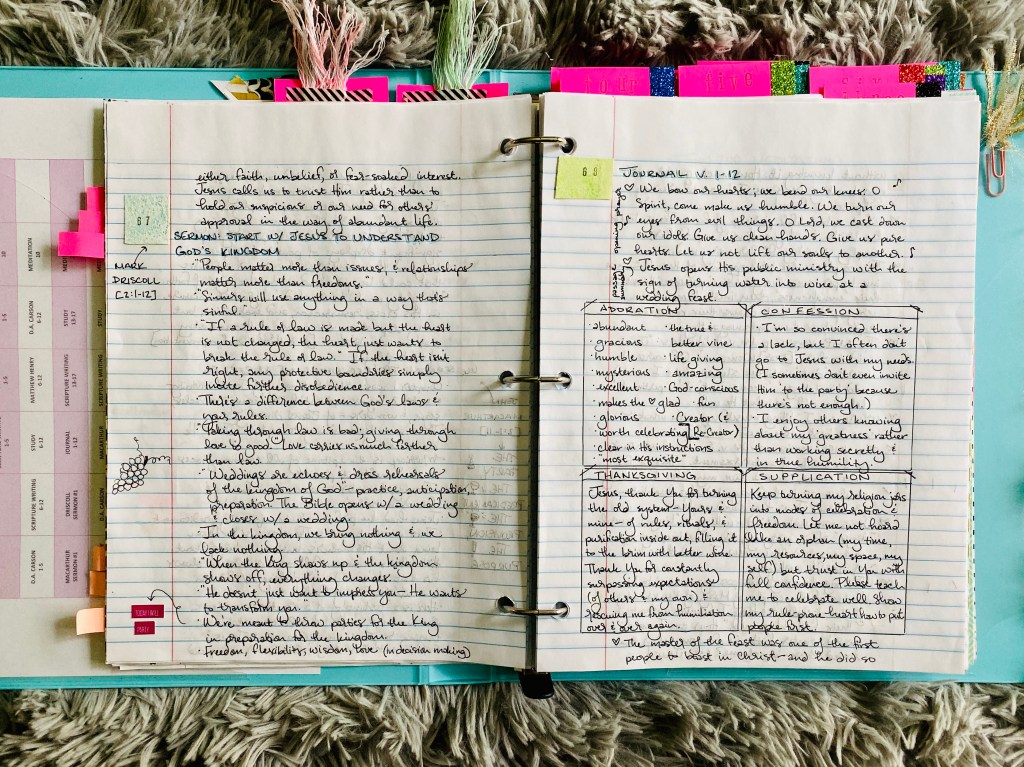 four
five
six
either faith, unbelief, or fear-soaked interest.
Jesus calls us to trust Him rather than to
hold our suspicions or our need for others'
approval in the way of abundant life.
67
SERMON: START W/ JESUS TO UNDERSTAND
GOD'S KINGDOM
MARK
DRISCOLL
[2:1-12]
• "People matter more than issues, & relationships
matter more than freedoms."
• "Sinners will use anything in a way that's
sinful."
• "If a rule of law is made but the heart
is not changed, the heart just wants to
break the rule of law." If the heart isn't
right, any protective boundaries simply
invite further disobedience.
• There's a difference between God's laws &
your rules.
• "Taking through law is bad; giving through
love is good." Love carries us much farther
than law.
• "Weddings are echoes & dress rehearsals
of the kingdom of God" – practice, anticipation,
preparation. The Bible opens w/ a wedding
& closes w/ a wedding.
• In the kingdom, we bring nothing & we
lack nothing.
• "When the King shows up & the kingdom
shows off, everything changes.
• "He doesn't just want to impress you – He wants
to transform you."
• We're meant to throw parties for the King
in preparation for the kingdom.
• Freedom, flexibility, wisdom, love (in decision making)
PARTY
MEDITATION
D.A. CARSON
6-12
STUDY
13-17
1-5
MATTHEW HENRY
6-12
SCRIPTURE WRITING
13-17
1-5
STUDY
6-12
JOURNAL
1-12
MACARTHUR
SCRIPTURE WRITING
6-12
DRISCOLL
SERMON #1
D.A. CARSON
D.A. CARSON
1-5
MACARTHUR
SERMON #1
68
JOURNAL V. 1-12
opening song
♡ We bow our hearts; we bend our knees. O ♪
Spirit, come make us humble. We turn our
♪ eyes from evil things. O Lord, we cast down
our idols. Give us clean hands. Give us pure
hearts. Let us not lift our souls to another. ♪
passage summary
♡ Jesus opens His public ministry with the
sign of turning water into wine at a
wedding feast.
ADORATION
• abundant
• gracious
• humble
• mysterious
• excellent
• makes the ♡ glad
• glorious
• worth celebrating
• clear in His instructions
• "most exquisite"
• the true &
better vine
• life giving
• amazing
• God-conscious
• fun
• Creator (&
Re-Creator)
CONFESSION
• I'm so convinced there's
a lack, but I often don't
go to Jesus with my needs.
(I sometimes don't even invite
Him 'to the party' because
there's not enough.)
• I enjoy others knowing
about my 'greatness' rather
than working secretly &
in true humility.
THANKSGIVING
Jesus, thank You for turning
the old system – Yours &
mine – of rules, rituals, &
purification inside out, filling it
to the brim with better wine.
Thank You for constantly
surpassing expectations
(of others & my own) &
rescuing me from humiliation
over & over again.
SUPPLICATION
Keep turning my religion jars
into modes of celebration &
freedom. Let me not hoard
like an orphan (my time,
my resources, my space, my
self) but trust in You with
full confidence. Please teach
me to celebrate well. Show
my rule-prone-heart how to put
people first.
♡ The master of the feast was one of the first
people to boast in Christ – and he did so